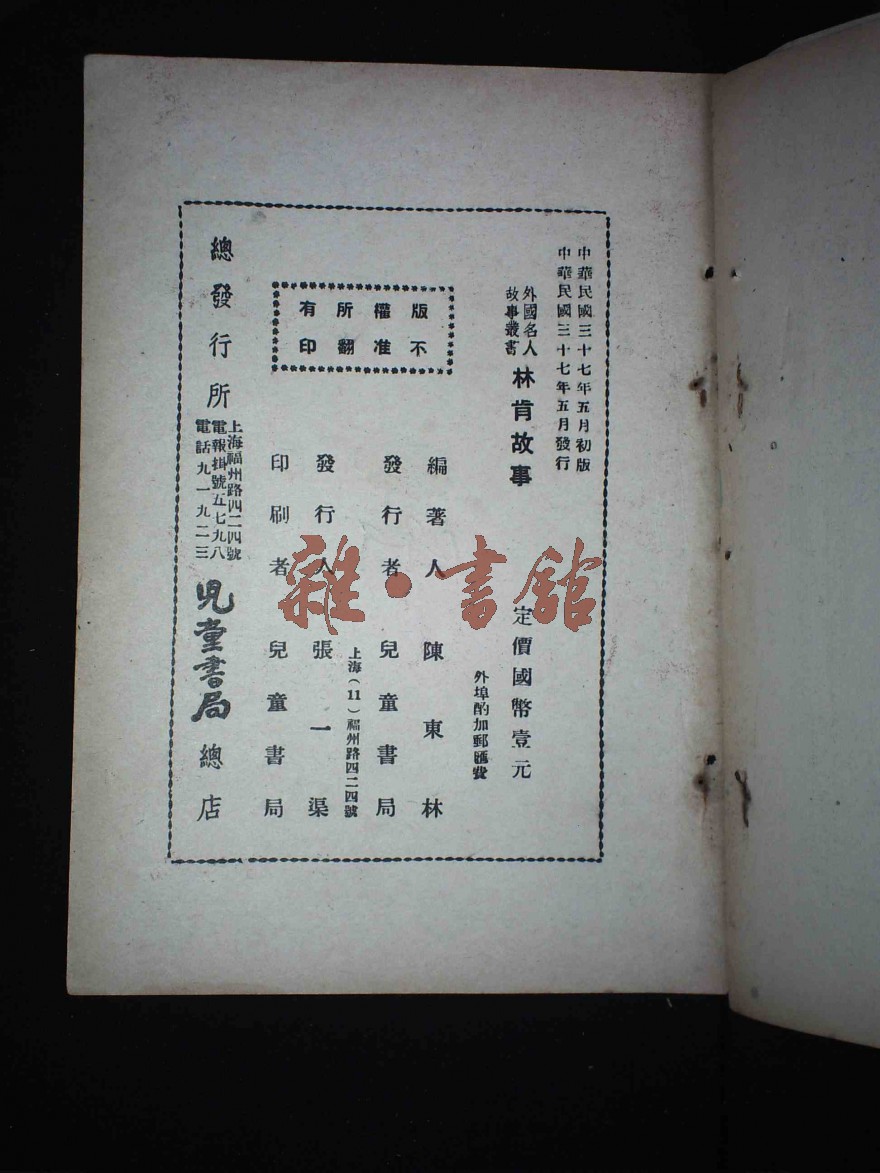 中華民國三十七年五月初版
中華民國三十七年五月發行
外國名人
故事叢書
林肯故事
定價國幣壹元
外埠酌加郵匯費
版權所有
不准翻印
編著人 陳東林
發行者 兒童書局
上海(11)福州路四二四號
發行人 張一渠
印刷者 兒童書局
總發行所
上海福州路四二四號
電報掛號五七九八
電話九一九二三
兒童書局總店
雜·書館